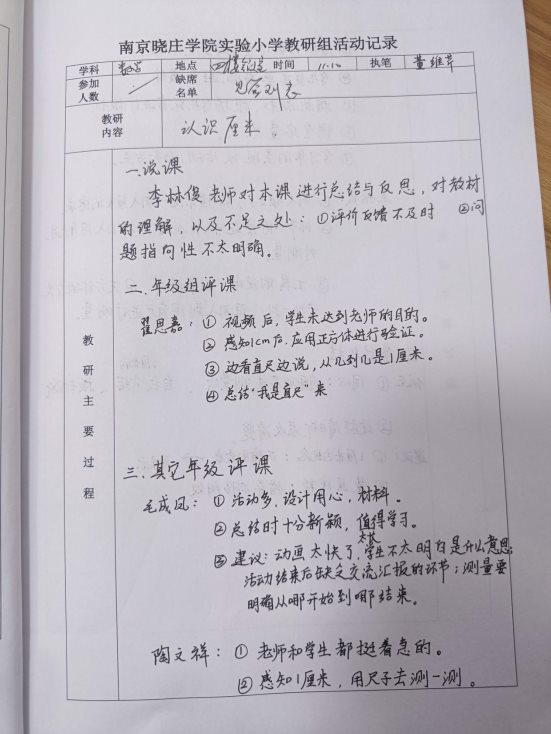 南京晓庄学院实验小学教研组活动记录
学科 数学 地点 四楼 时间 11.10 执笔 董维芹
参加人数 缺席名单
教研内容 认识厘米
教研主要过程
一、说课
李林俊老师对本课进行总结与反思，对教材
的理解，以及不足之处：①评价反馈不及时 ②问
题指向性不太明确。
二、年级组评课
翟思嘉：① 视频后，学生未达到老师的目的。
② 感知1cm后，应用正方体进行验证。
③ 边看直尺边说，从几到几是1厘米。
④ 总结“我是直尺”来
三、其它年级评课
毛成凤：① 活动多，设计用心，材料。
② 总结时十分新颖，值得学习。
③ 建议：动画太快了，学生不太明白是什么意思
活动结束后缺乏交流汇报的环节；测量要
明确从哪开始到哪结束。
陶文祥：① 老师和学生都挺着急的。
② 感知1厘米，用尺子去测一测。